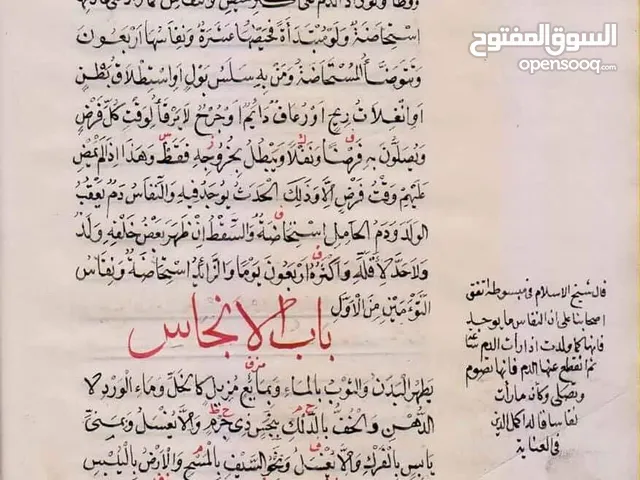 استحاضة ولو مبتدأة فحيضها عشرة ونفاسها اربعون
وتتوضأ المستحاضة ومن به سلس بول او استطلاق بطن
او انفلات ريح او رعاف دايم او جرح لا يرقأ لوقت كل فرض
ويصلون به فرضا ونفلا ويبطل بخروجه فقط وهذا اذا لم يمض
عليهم وقت فرض الا وذلك الحدث يوجد فيه والنفاس دم يعقب
الولد ودم الحامل استحاضة والسقط ان ظهر بعض خلقه ولد
ولا حد لاقله واكثره اربعون يوما والزائد استحاضة ونفاس
التوءمين من الاول
باب الانجاس
يطهر البدن والثوب بالماء وبمايع مزيل كالخل وماء الورد لا
الدهن والخف بالدلك بنجس ذي جرم والا يغسل وبمنى
يابس بالفرك والا يغسل ونحو السيف بالمسح والارض باليبس
قال شيخ الاسلام فى مبسوطه اتفق
اصحابنا على ان النفاس ما يوجد
فانها كما ولدت اذا رأت الدم
ثم انقطع عنها الدم فانها تصوم
وتصلى وكان ما رأت
نفاسا قاله اكمل الدين
فى العناية
السوق المفتوح
opensooq.com